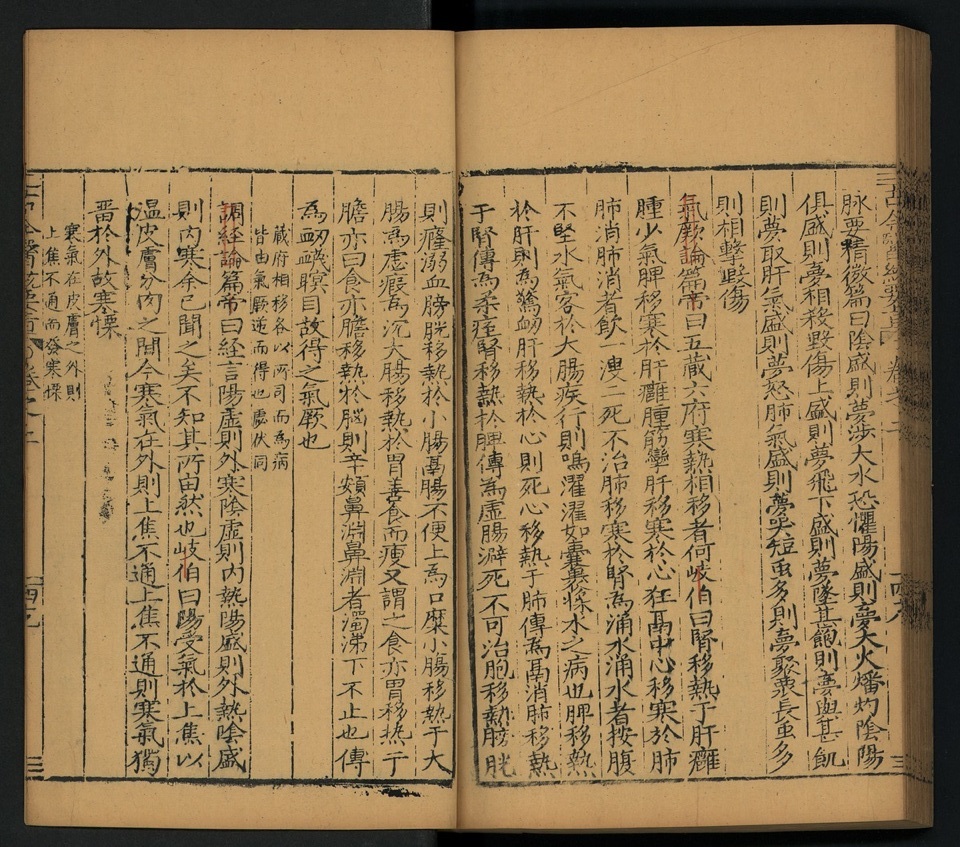 脉要精微篇曰陰盛則夢涉大水恐懼陽盛則夢大火燔灼陰陽
俱盛則夢相殺毀傷上盛則夢飛下盛則夢墜甚飽則夢與甚飢
則夢取肝氣盛則夢怒肺氣盛則夢哭短虫多則夢聚衆長虫多
則相擊毀傷
氣厥論篇帝曰五藏六府寒熱相移者何岐伯曰腎移熱于肝癰
腫少氣脾移寒於肝癰腫筋攣肝移寒於心狂鬲中心移寒於肺
肺消肺消者飲一溲二死不治肺移寒於腎為涌水涌水者按腹
不堅水氣客於大腸疾行則鳴濯濯如囊裹漿水之病也脾移熱
於肝則為驚衂肝移熱於心則死心移熱于肺傳為鬲消肺移熱
于腎傳為柔痓腎移熱於脾傳為虛腸澼死不可治胞移熱膀胱
則癃溺血膀胱移熱於小腸鬲腸不便上為口糜小腸移熱于大
腸為虙瘕為沉大腸移熱於胃善食而瘦又謂之食亦胃移热于
膽亦曰食亦膽移熱於腦則辛頞鼻淵鼻淵者濁涕下不止也傳
為衂衊瞑目故得之氣厥也
藏府相移各以所司而為病
皆由氣厥逆而得也處伏同
調経論篇帝曰経言陽虛則外寒陰虛則内熱陽盛則外熱陰盛
則内寒余已聞之矣不知其所由然也岐伯曰陽受氣於上焦以
温皮膚分肉之間今寒氣在外則上焦不通上焦不通則寒氣獨
畱於外故寒慄
寒氣在皮膚之外則
上焦不通而發寒慄